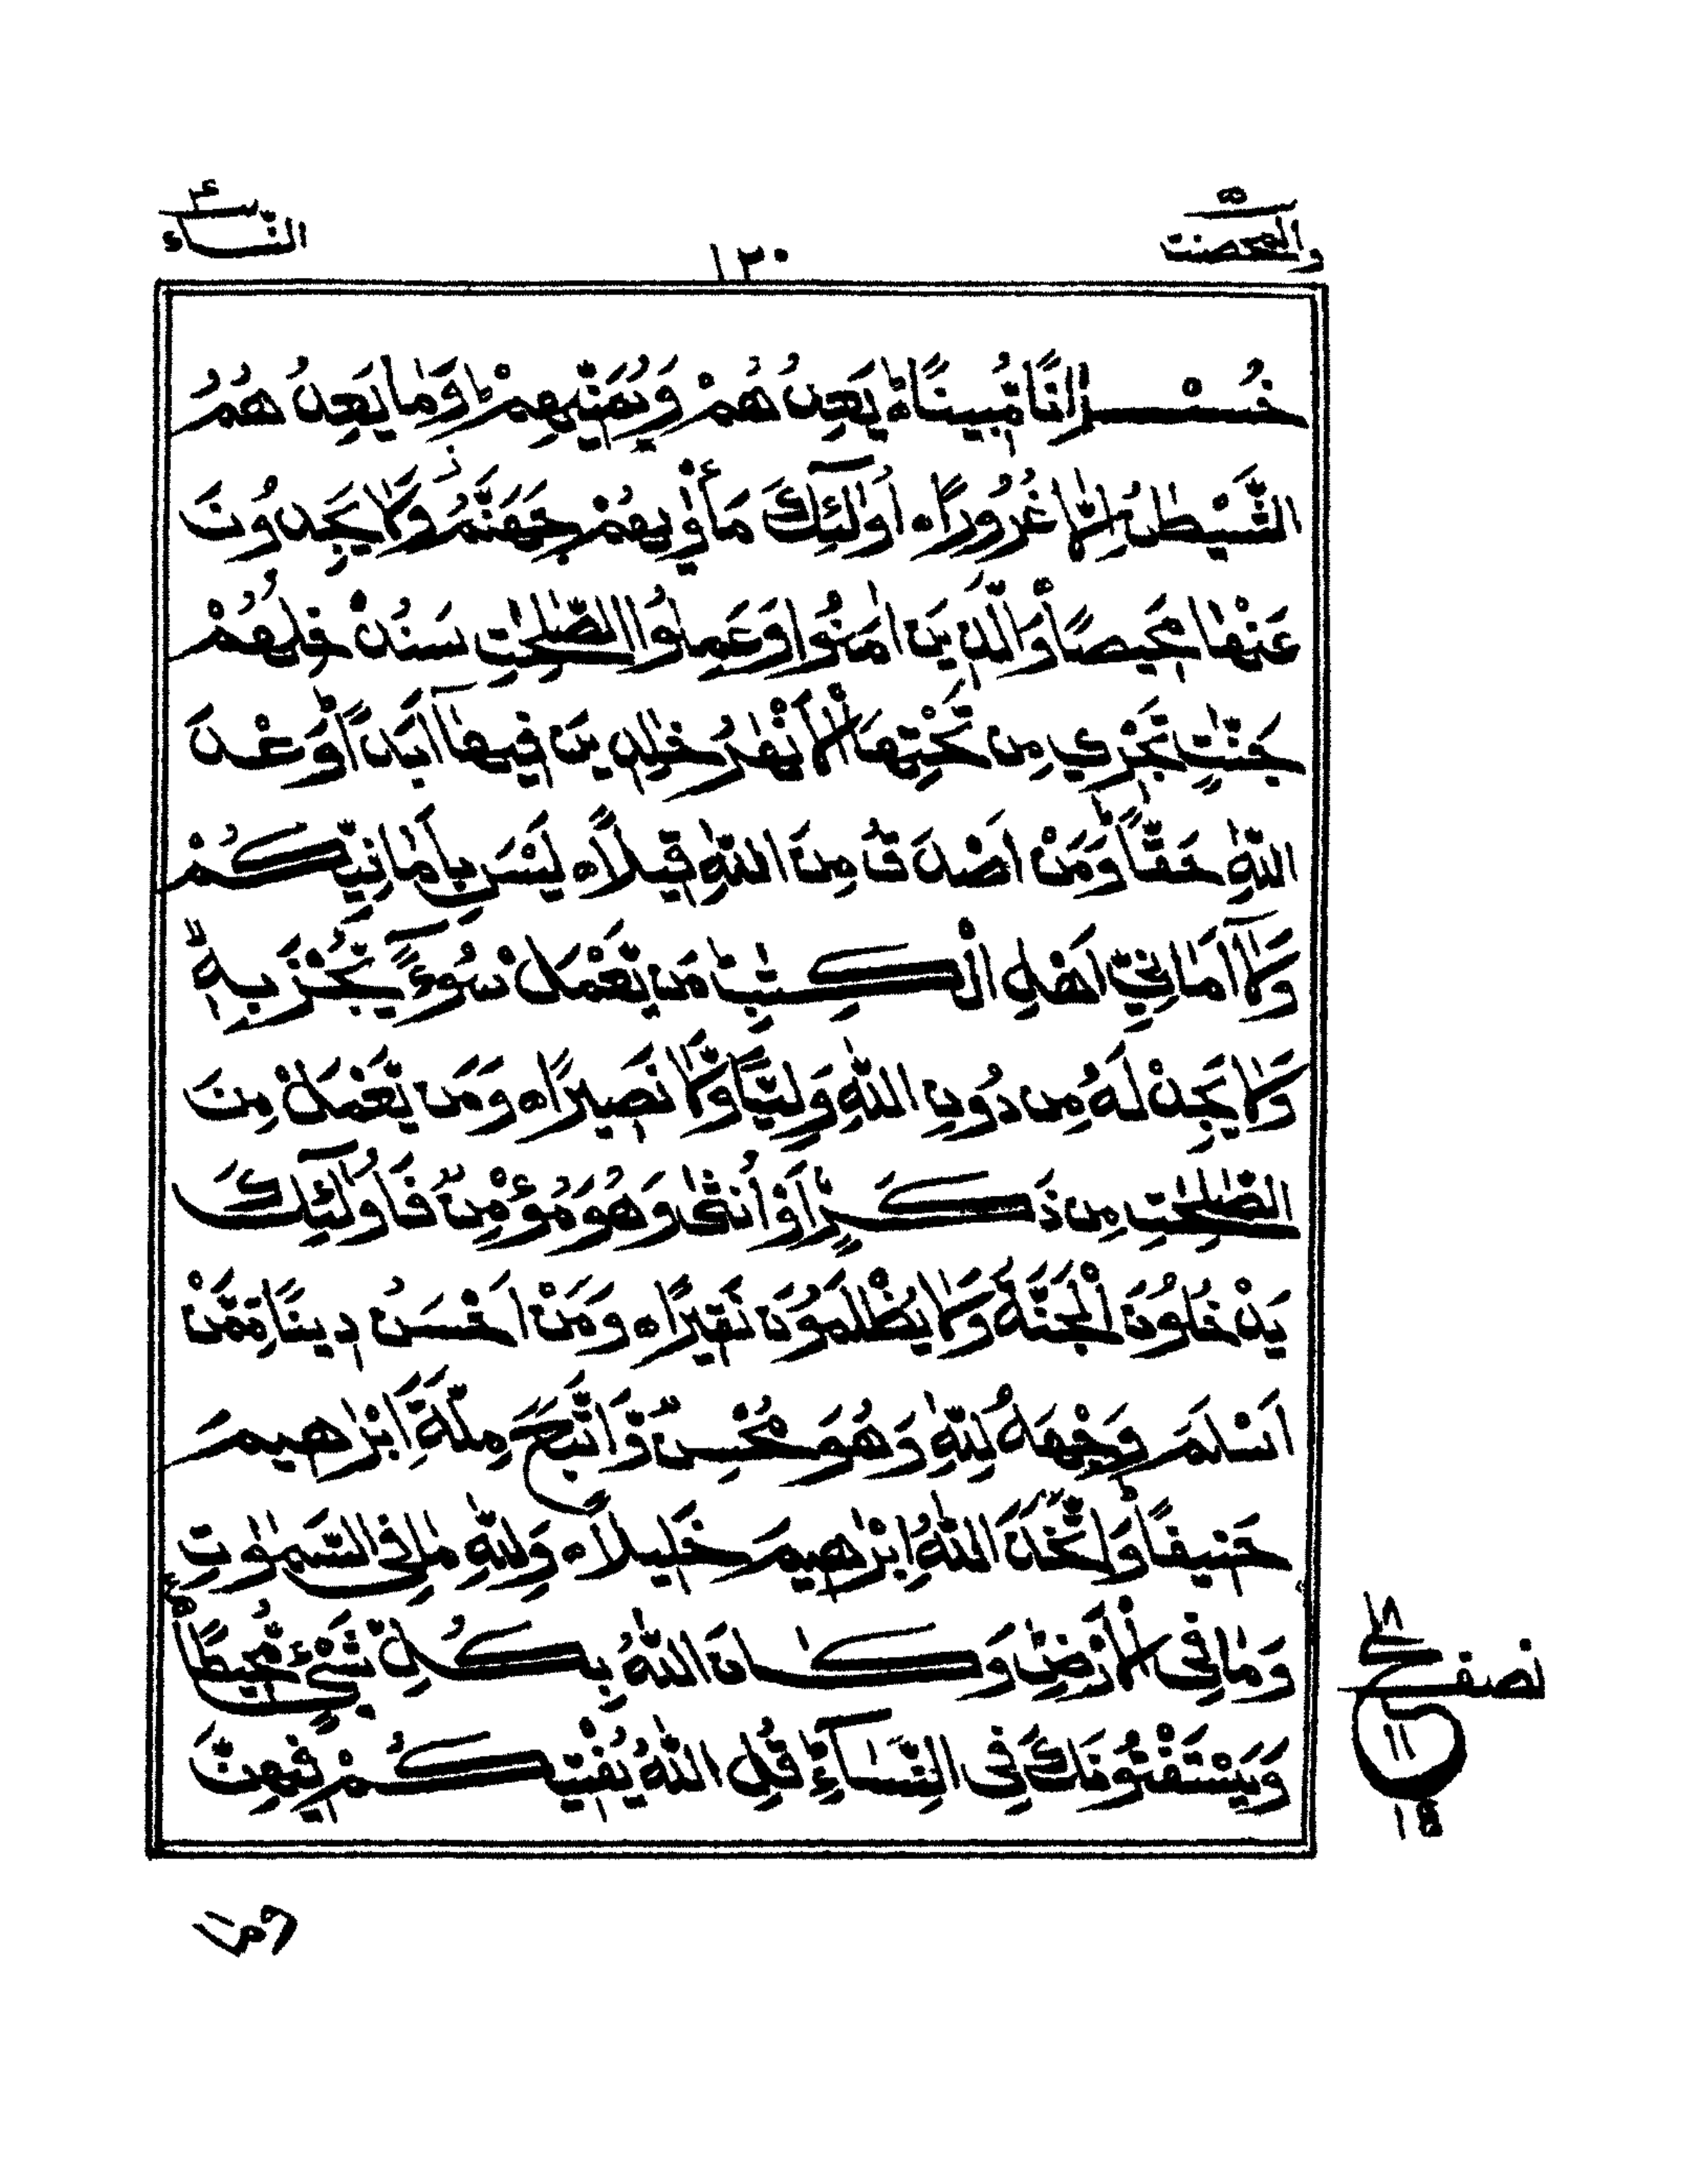 والمحصنت ۵
١٣٠
النساء ۴
خُسْرَانًا مُّبِينًا ؕ يَعِدُهُمْ وَيُمَنِّيهِمْ ؕ وَمَا يَعِدُهُمُ
الشَّيْطٰنُ اِلَّا غُرُورًا ہ اُولٰٓئِكَ مَأْوٰىهُمْ جَهَنَّمُ ز وَلَا يَجِدُونَ
عَنْهَا مَحِيصًا ہ وَالَّذِينَ اٰمَنُوا وَعَمِلُوا الصّٰلِحٰتِ سَنُدْخِلُهُمْ
جَنّٰتٍ تَجْرِي مِن تَحْتِهَا الْاَنْهٰرُ خٰلِدِينَ فِيهَآ اَبَدًا ؕ وَعْدَ
اللّٰهِ حَقًّا ؕ وَمَنْ اَصْدَقُ مِنَ اللّٰهِ قِيلًا ہ لَيْسَ بِاَمَانِيِّكُمْ
وَلَآ اَمَانِيِّ اَهْلِ الْكِتٰبِ ؕ مَن يَّعْمَلْ سُوٓءًا يُّجْزَ بِهٖ ۙ
وَلَا يَجِدْ لَهُ مِن دُونِ اللّٰهِ وَلِيًّا وَّلَا نَصِيرًا ہ وَمَن يَّعْمَلْ مِنَ
الصّٰلِحٰتِ مِن ذَكَرٍ اَوْ اُنثٰى وَهُوَ مُؤْمِنٌ فَاُولٰٓئِكَ
يَدْخُلُونَ الْجَنَّةَ وَلَا يُظْلَمُونَ نَقِيرًا ہ وَمَنْ اَحْسَنُ دِينًا مِّمَّنْ
اَسْلَمَ وَجْهَهُ لِلّٰهِ وَهُوَ مُحْسِنٌ وَّاتَّبَعَ مِلَّةَ اِبْرٰهِيمَ
حَنِيفًا ؕ وَاتَّخَذَ اللّٰهُ اِبْرٰهِيمَ خَلِيلًا ہ وَلِلّٰهِ مَا فِي السَّمٰوٰتِ
وَمَا فِي الْاَرْضِ ؕ وَكَانَ اللّٰهُ بِكُلِّ شَيْءٍ مُّحِيطًا ہ ع
وَيَسْتَفْتُونَكَ فِي النِّسَآءِ ؕ قُلِ اللّٰهُ يُفْتِيكُمْ فِيهِنَّ
١٨
نصف
ع
١١
١۵